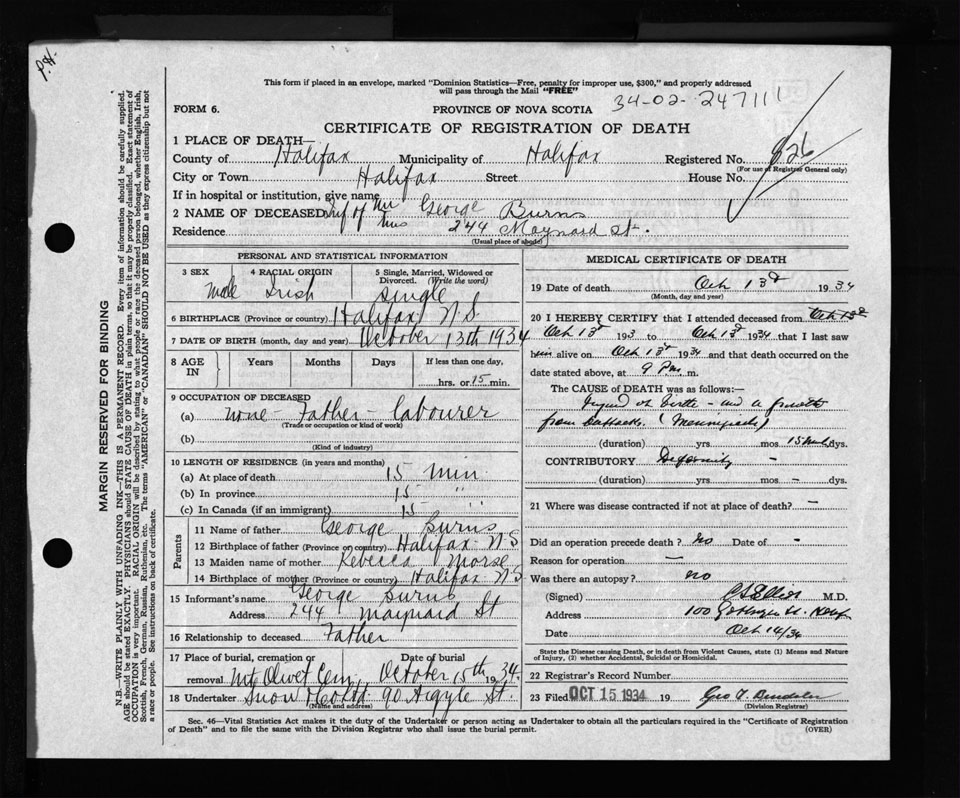 P.H.
This form if placed in an envelope, marked "Dominion Statistics—Free, penalty for improper use, $300," and properly addressed
will pass through the Mail "FREE"
FORM 6.
PROVINCE OF NOVA SCOTIA
34-02-247111
CERTIFICATE OF REGISTRATION OF DEATH
1 PLACE OF DEATH—
County of Halifax Municipality of Halifax Registered No. 826
(For use of Registrar General only)
City or Town Halifax Street House No.
If in hospital or institution, give name
2 NAME OF DECEASED Inf of Mr George Burns
Mrs
Residence 244 Maynard St.
(Usual place of abode)
PERSONAL AND STATISTICAL INFORMATION
3 SEX 4 RACIAL ORIGIN 5 Single, Married, Widowed or
Divorced. (Write the word)
Male Irish Single
6 BIRTHPLACE (Province or country) Halifax N.S.
7 DATE OF BIRTH (month, day and year) October 13th 1934
8 AGE IN Years Months Days If less than one day,
hrs. or 15 min.
9 OCCUPATION OF DECEASED
(a) None - Father - labourer
(Trade or occupation or kind of work)
(b)
(Kind of industry)
10 LENGTH OF RESIDENCE (in years and months)
(a) At place of death 15 Min
(b) In province 15 " "
(c) In Canada (if an immigrant) 15 - "
Parents
11 Name of father George Burns
12 Birthplace of father (Province or country) Halifax N S
13 Maiden name of mother Rebecca Morse
14 Birthplace of mother (Province or country) Halifax N S
15 Informant's name George Burns
Address 244 Maynard St
16 Relationship to deceased Father
17 Place of burial, cremation or Date of burial
removal Mt Olivet Cem, October 15th 1934
18 Undertaker Snow & Co Ltd 90 Argyle St.
(Name and address)
MEDICAL CERTIFICATE OF DEATH
19 Date of death Oct 13d 1934
(Month, day and year)
20 I HEREBY CERTIFY that I attended deceased from Oct 13d
Oct 13d 193 to Oct 13d 1934 that I last saw
him alive on Oct 13d 1934 and that death occurred on the
date stated above, at 9 Pm. m.
The CAUSE OF DEATH was as follows:—
at birth - and a growth
from
(duration) yrs. mos. 15 dys.
CONTRIBUTORY Deformity -
(duration) yrs. mos. - dys.
21 Where was disease contracted if not at place of death? -
Did an operation precede death? No Date of -
Reason for operation -
Was there an autopsy? no
(Signed) M.D.
Address 100
Date Oct 14/34
State the Disease causing Death, or in death from Violent Causes, state (1) Means and Nature
of Injury, (2) whether Accidental, Suicidal or Homicidal.
22 Registrar's Record Number
23 Filed OCT 15 1934 19 Geo
(Division Registrar)
Sec. 46—Vital Statistics Act makes it the duty of the Undertaker or person acting as Undertaker to obtain all the particulars required in the "Certificate of Registration
of Death" and to file the same with the Division Registrar who shall issue the burial permit.
(OVER)
MARGIN RESERVED FOR BINDING
N.B.—WRITE PLAINLY WITH UNFADING INK—THIS IS A PERMANENT RECORD. Every item of information should be carefully supplied.
AGE should be stated EXACTLY. PHYSICIANS should STATE CAUSE OF DEATH in plain terms, so that it may be properly classified. Exact statement of
OCCUPATION is very important. RACIAL ORIGIN will be described by stating to what people or race the deceased person belonged, whether English, Irish,
Scottish, French, German, Russian, Ruthenian, etc. The terms "AMERICAN" or "CANADIAN" SHOULD NOT BE USED as they express citizenship but not
a race or people. See instructions on back of certificate.